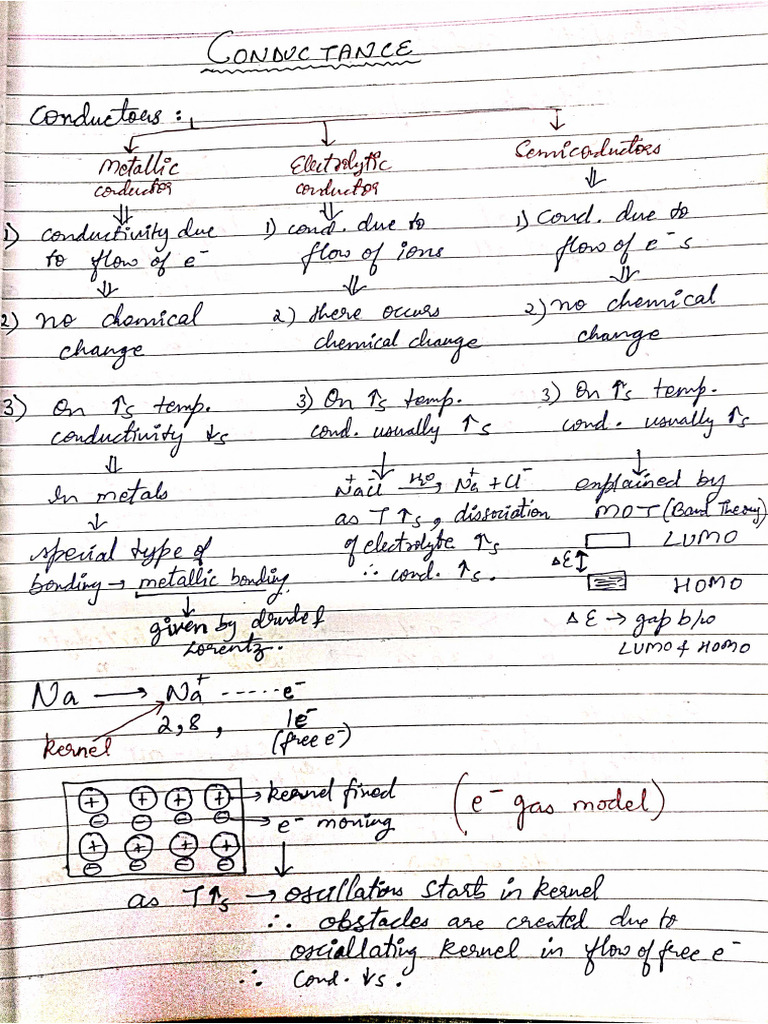 CONDUCTANCE
Conductors :
Metallic conductor
Electrolytic conductor
Semiconductors
1) conductivity due
to flow of e⁻
2) no chemical
change
3) On ↑s temp.
conductivity ↓s
In metals
special type of
bonding → metallic bonding.
given by drude &
Lorentz.
1) cond. due to
flow of ions
2) there occurs
chemical change
3) On ↑s temp.
cond. usually ↑s
Na⁺Cl⁻ —H₂O→ Na⁺ + Cl⁻
as T ↑s, dissociation
of electrolyte ↑s
∴ cond. ↑s.
1) Cond. due to
flow of e⁻s
2) no chemical
change
3) On ↑s temp.
cond. usually ↑s
explained by
MOT (Band Theory)
LUMO
ΔE
HOMO
ΔE → gap b/w
LUMO & HOMO
Na → Na⁺ ------e⁻
2,8, 1e⁻
kernel (free e⁻)
+ + + + → kernel fixed
- - - - → e⁻ moving
+ + + +
- - - -
(e⁻ gas model)
as T↑s → oscillations starts in kernel
∴ obstacles are created due to
osciallating kernel in flow of free e⁻
∴ Cond. ↓s.